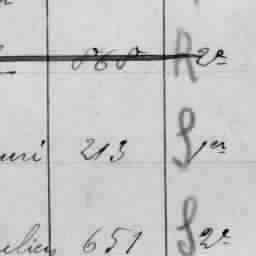 868 R 2e
uri 213 S 1er
elien 651 S 2e